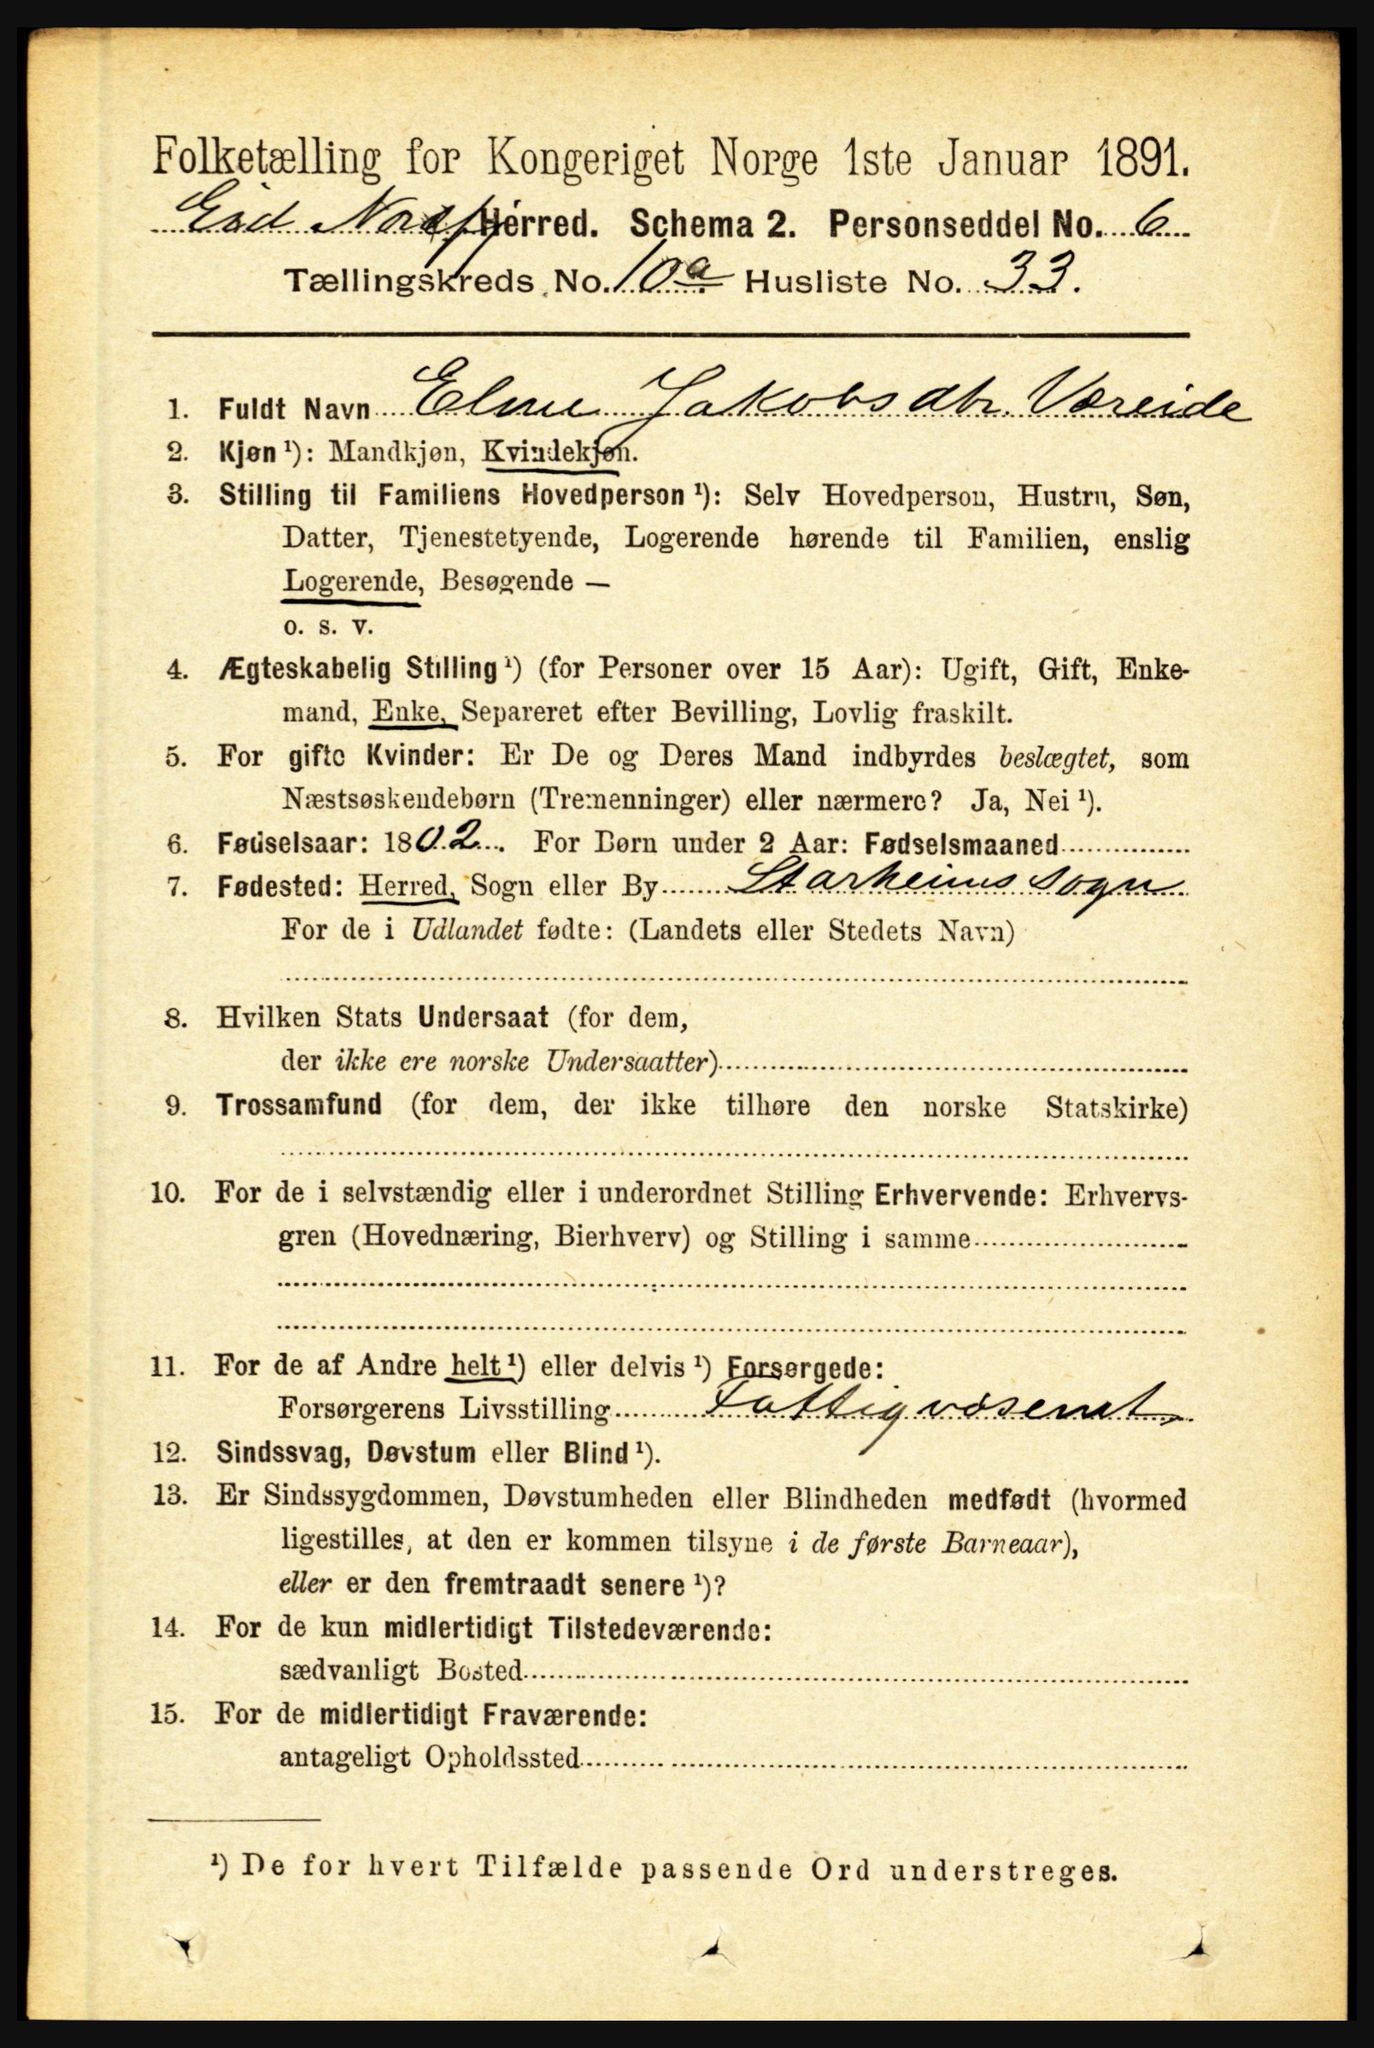 Folketælling for Kongeriget Norge 1ste Januar 1891.
Eid Nordfj Herred. Schema 2. Personseddel No. 6
Tællingskreds No. 10a Husliste No. 33.
1. Fuldt Navn Eline Jakobsdtr. Væreide
2. Kjøn¹): Mandkjøn, Kvindekjøn.
3. Stilling til Familiens Hovedperson¹): Selv Hovedperson, Hustru, Søn,
Datter, Tjenestetyende, Logerende hørende til Familien, enslig
Logerende, Besøgende —
o. s. v.
4. Ægteskabelig Stilling¹) (for Personer over 15 Aar): Ugift, Gift, Enke-
mand, Enke, Separeret efter Bevilling, Lovlig fraskilt.
5. For gifte Kvinder: Er De og Deres Mand indbyrdes beslægtet, som
Næstsøskendebørn (Tremenninger) eller nærmere? Ja, Nei¹).
6. Fødselsaar: 1802. For Børn under 2 Aar: Fødselsmaaned
7. Fødested: Herred, Sogn eller By Starheims sogn
For de i Udlandet fødte: (Landets eller Stedets Navn)
8. Hvilken Stats Undersaat (for dem,
der ikke ere norske Undersaatter)
9. Trossamfund (for dem, der ikke tilhøre den norske Statskirke)
10. For de i selvstændig eller i underordnet Stilling Erhvervende: Erhvervs-
gren (Hovednæring, Bierhverv) og Stilling i samme
11. For de af Andre helt¹) eller delvis¹) Forsørgede:
Forsørgerens Livsstilling Fattigvæsenet
12. Sindssvag, Døvstum eller Blind¹).
13. Er Sindssygdommen, Døvstumheden eller Blindheden medfødt (hvormed
ligestilles, at den er kommen tilsyne i de første Barneaar),
eller er den fremtraadt senere¹)?
14. For de kun midlertidigt Tilstedeværende:
sædvanligt Bosted
15. For de midlertidigt Fraværende:
antageligt Opholdssted
¹) De for hvert Tilfælde passende Ord understreges.